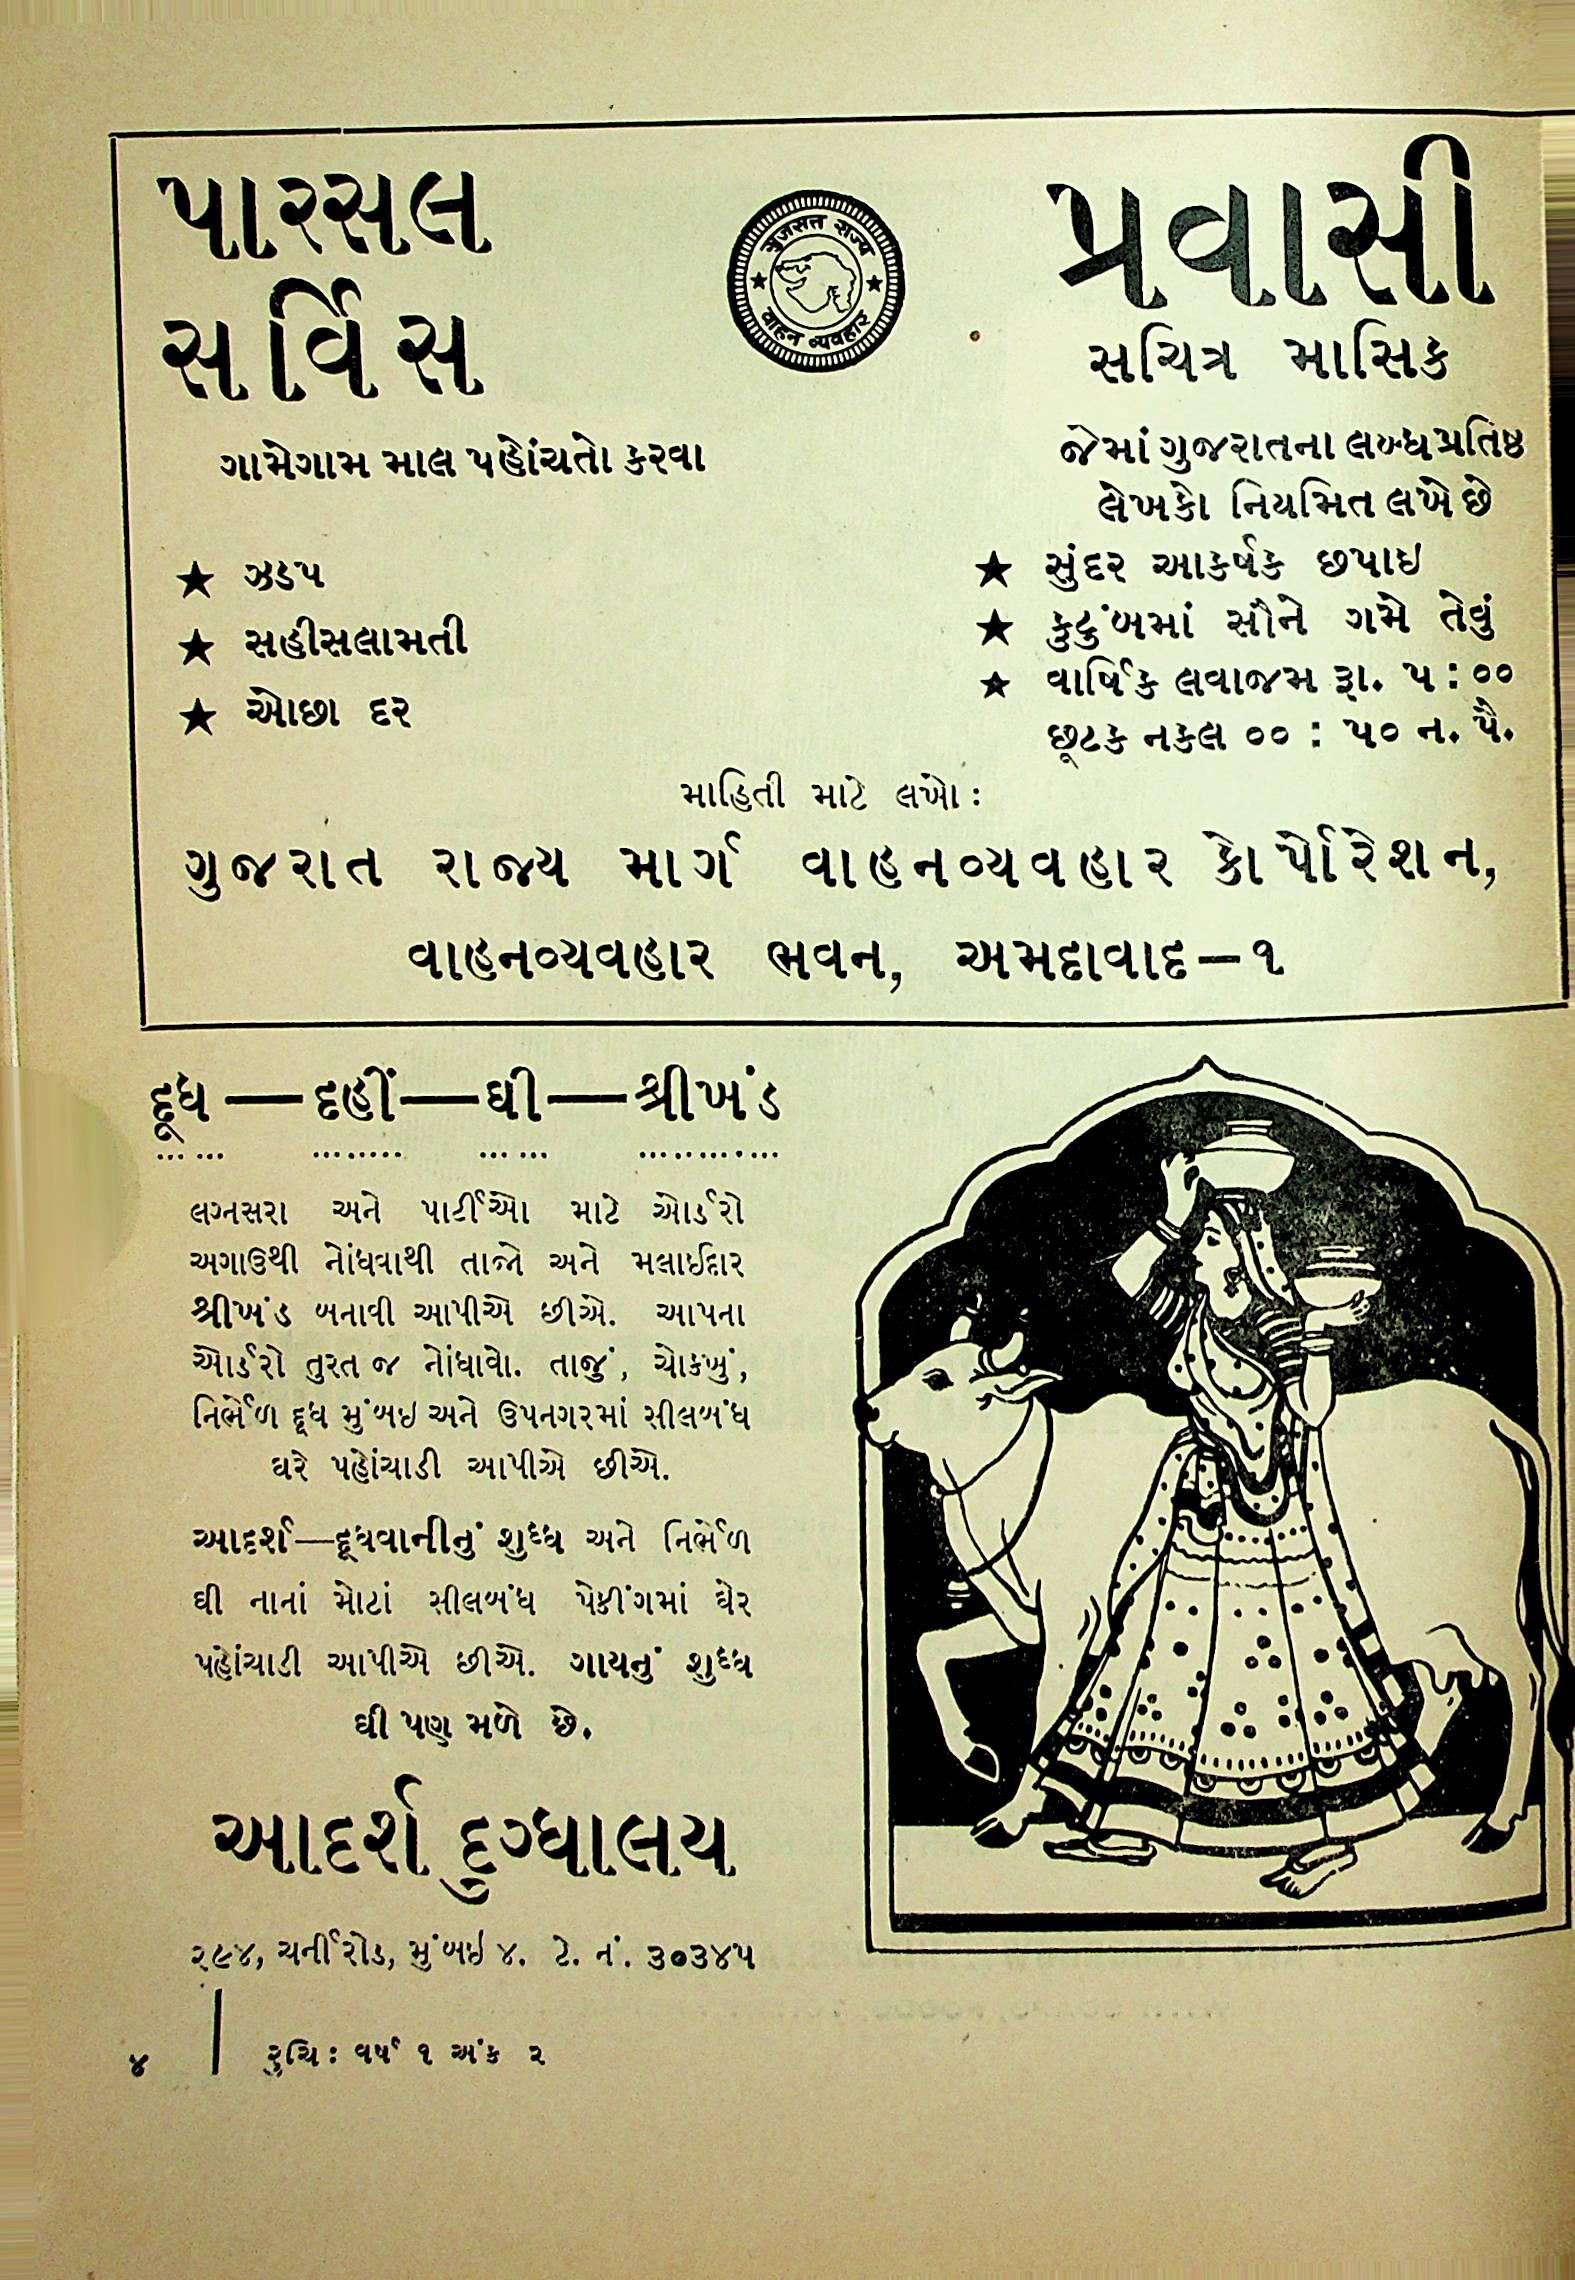 પારસલ
સર્વિસ
ગામેગામ માલ પહોંચતો કરવા
★ ઝડપ
★ સહીસલામતી
★ ઓછા દર
ગુજરાત રાજ્ય
વાહન વ્યવહાર
પ્રવાસી
સચિત્ર માસિક
જેમાં ગુજરાતના લબ્ધપ્રતિષ્ઠ
લેખકો નિયમિત લખે છે
★ સુંદર આકર્ષક છપાઇ
★ કુટુંબમાં સૌને ગમે તેવું
★ વાર્ષિક લવાજમ રૂા. ૫ : ૦૦
છૂટક નકલ ૦૦ : ૫૦ ન. પૈ.
માહિતી માટે લખો :
ગુજરાત રાજ્ય માર્ગ વાહનવ્યવહાર કોર્પોરેશન,
વાહનવ્યવહાર ભવન, અમદાવાદ–૧
દૂધ — દહીં — ઘી — શ્રીખંડ
લગ્નસરા અને પાર્ટીઓ માટે ઓર્ડરો
અગાઉથી નોંધવાથી તાજો અને મલાઈદાર
શ્રીખંડ બનાવી આપીએ છીએ. આપના
ઓર્ડરો તુરત જ નોંધાવો. તાજું, ચોકખું,
નિર્ભેળ દૂધ મુંબઇ અને ઉપનગરમાં સીલબંધ
ઘરે પહોંચાડી આપીએ છીએ.
આદર્શ—દૂધવાનીનું શુદ્ધ અને નિર્ભેળ
ઘી નાનાં મોટાં સીલબંધ પેકીંગમાં ઘેર
પહોંચાડી આપીએ છીએ. ગાયનું શુદ્ધ
ઘી પણ મળે છે.
આદર્શ દુગ્ધાલય
૨૯૪, ચર્નીરોડ, મુંબઇ ૪. ટે. નં. ૩૦૩૪૫
૪ | રુચિ : વર્ષ ૧ અંક ૨